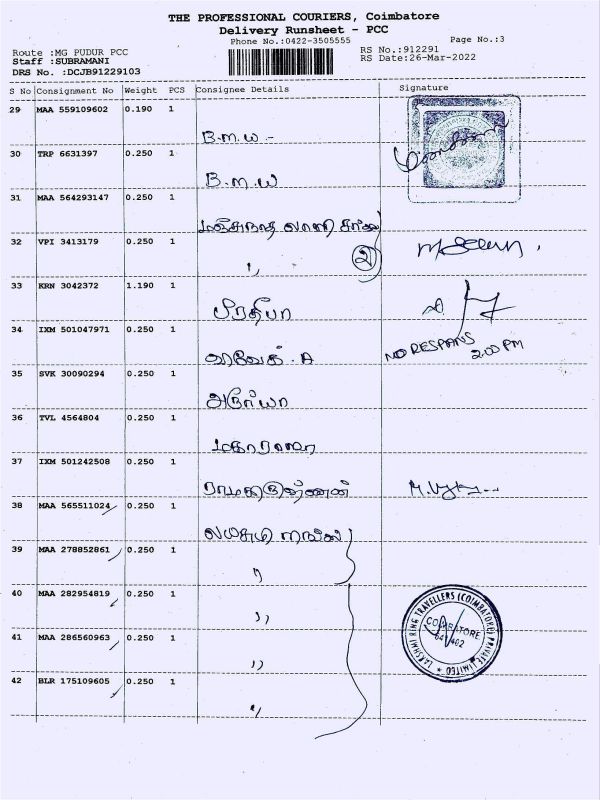 THE PROFESSIONAL COURIERS, Coimbatore
Delivery Runsheet - PCC
Phone No.:0422-3505555
Page No.:3
Route :MG PUDUR PCC
RS No.:912291
Staff :SUBRAMANI
RS Date:26-Mar-2022
DRS No. :DCJB91229103
S No Consignment No Weight PCS Consignee Details Signature
29 MAA 559109602 0.190 1
B.M.W -
30 TRP 6631397 0.250 1
B.M.W
31 MAA 564293147 0.250 1
32 VPI 3413179 0.250 1
" 2
33 KRN 3042372 1.190 1
பிரதீபா
34 IXM 501047971 0.250 1
NO RESPANS
2.00 PM
35 SVK 30090294 0.250 1
36 TVL 4564804 0.250 1
37 IXM 501242508 0.250 1
38 MAA 565511024 0.250 1
39 MAA 278852861 0.250 1
"
40 MAA 282954819 0.250 1
"
41 MAA 286560963 0.250 1
"
42 BLR 175109605 0.250 1
"
LAKSHMI RING TRAVELLERS (COIMBATORE) PRIVATE LIMITED
COIMBATORE